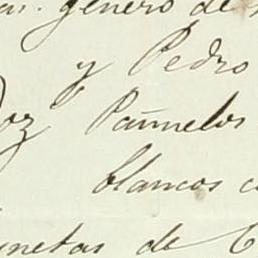 genero de
y Pedro
Doz Pañuelos
blancos c
netas de C